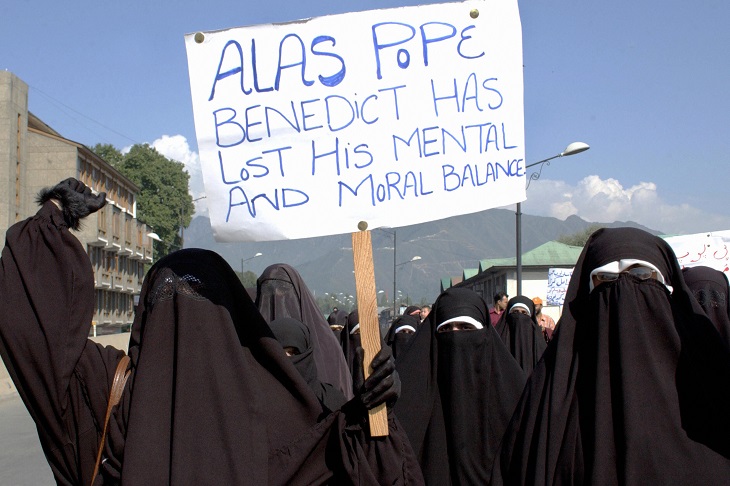 ALAS POPE
BENEDICT HAS
LOST HIS MENTAL
AND MORAL BALANCE.